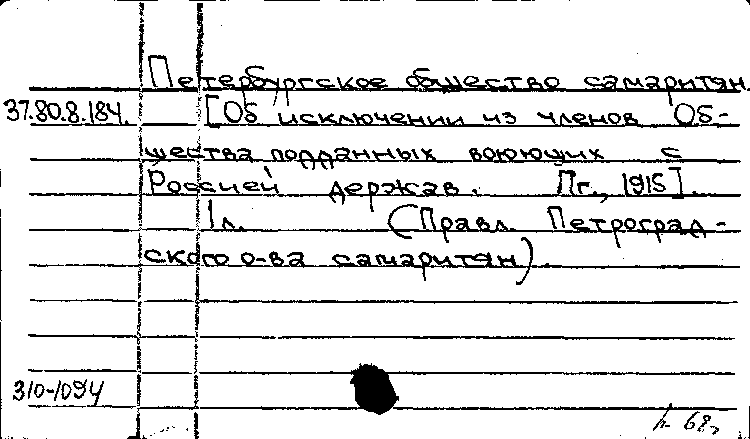 Петербургское общество самаритян.
37.80.8.184. [Об исключении из членов Об-
щества подданных воюющих с
Россией держав. Пг., 1915].
1 л. (Правл. Петроград-
ского о-ва самаритян).
310-1094
68г